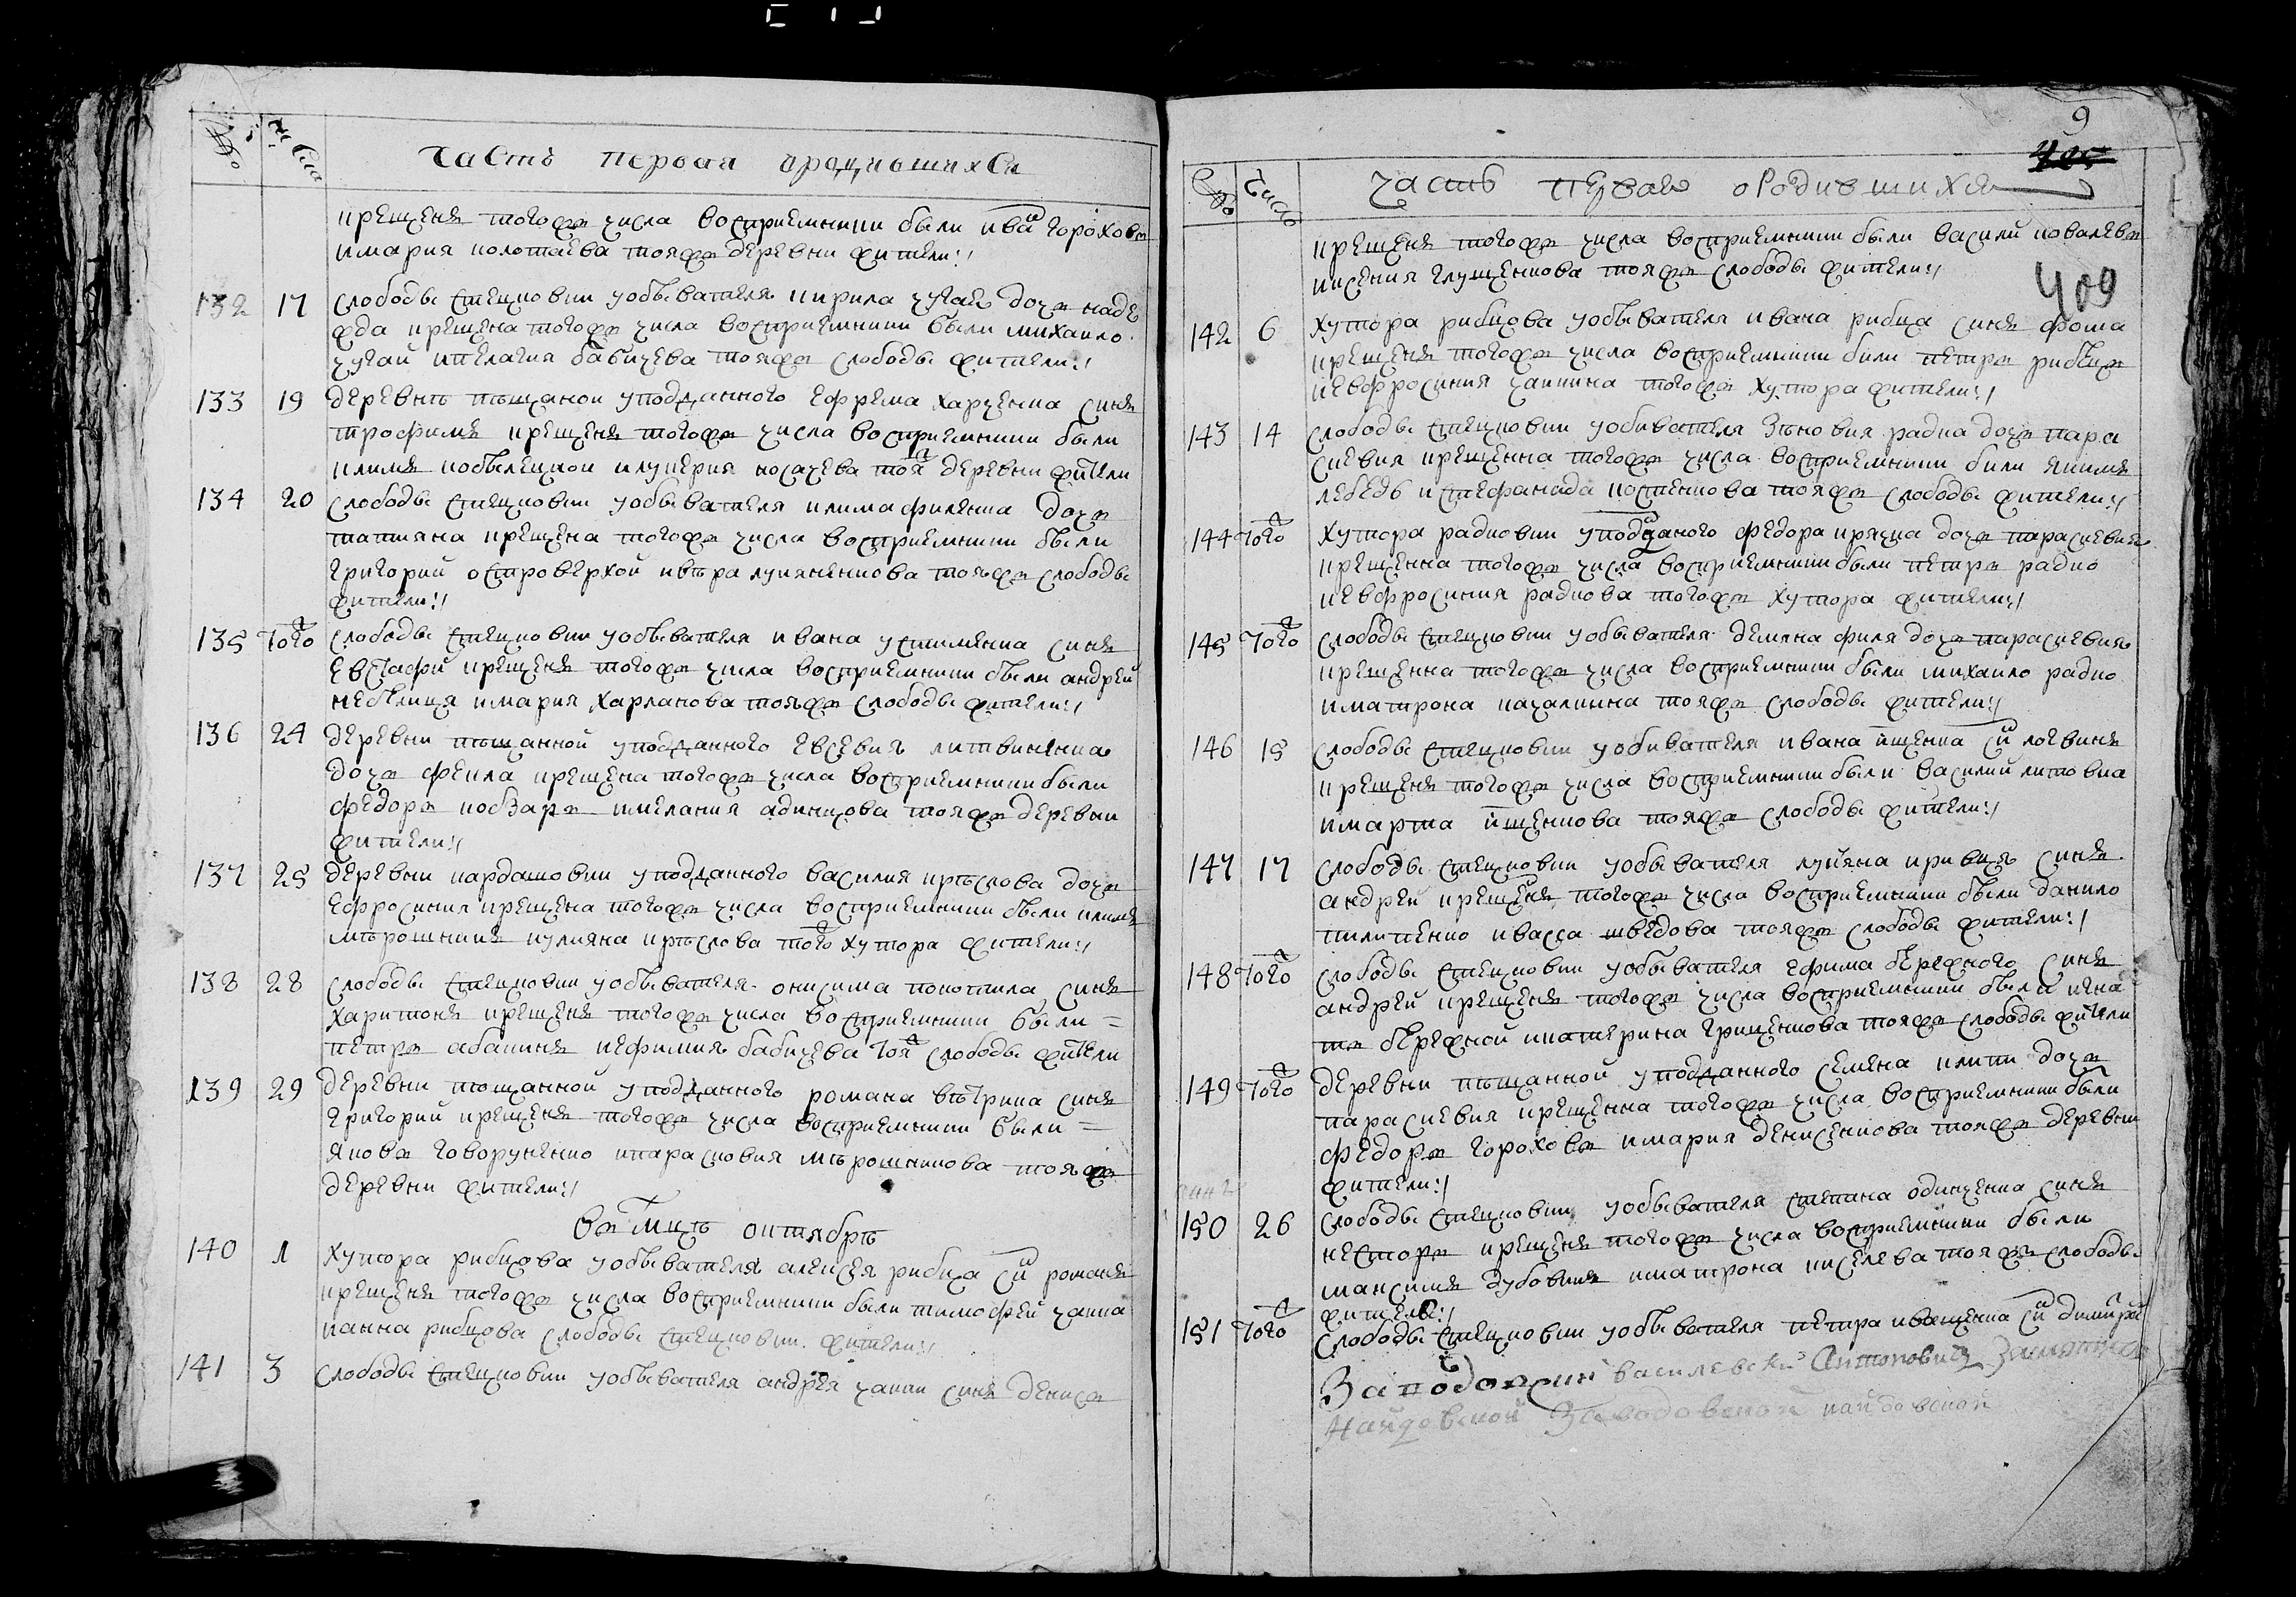 часть первая о родившихся
крещенъ тогожъ числа восприемники были иванъ гороховъ
и мария полотаева тояжъ деревни жители
132 17 слободы стецковки у обывателя кирила чугая дочь наде
жда крещена тогожъ числа восприемники были михаило
чугай и пелагия бабичева тояжъ слободы жители
133 19 деревнѣ пѣщаной у подданного ефрема харченка синъ
трофимъ крещенъ тогожъ числа восприемники были
климъ кобылецкой и лукерия носачева тояжъ деревни жители
134 20 слободы стецковки у обывателя клима филенка дочь
татияна крещена тогожъ числа восприемники были
григорий островерхой и вѣра лукяненкова тояжъ слободы
жители
135 тогожъ слободы стецковки у обывателя ивана устименка синъ
евстафий крещенъ тогожъ числа восприемники были андрей
небылиця и мария харланова тояжъ слободы жители
136 24 деревни пѣщанной у подданного евсевия литвиненка
дочь фекла крещена тогожъ числа восприемники были
федоръ кобзаръ и мелания адинцова тояжъ деревни
жители
137 25 деревни кардашовки у подданного василия крѣслова дочь
ефросиния крещена тогожъ числа восприемники были климъ
мѣрошникъ иулияна крѣслова тогожъ хутора жители
138 28 слободы стецковки у обывателя онисима покотила синъ
харитонъ крещенъ тогожъ числа восприемники были
петръ абакинъ и ефимия бабичева тояжъ слободы жители
139 29 деревни пѣщанной у подданного романа вѣтрика синъ
григорий крещенъ тогожъ числа восприемники были
яковъ говоруненко и парасковия мѣрошникова тояжъ
деревни жители
въ мцѣ октябрѣ
140 1 хутора рибцова у обывателя алексея рибца синъ романъ
крещенъ тогожъ числа восприемники были тимофей чапка
и анна рибцова слободы стецковки жители
141 3 слободы стецковки у обывателя андрея чапки синъ денисъ
9
409
часть первая о родившихся
крещенъ тогожъ числа восприемники были василий ковалевъ
и ксения глущенкова тояжъ слободы жители
142 6 хутора рибцова у обывателя ивана рибца синъ фома
крещенъ тогожъ числа восприемники били петръ рибецъ
и евфросиния чапкина тогожъ хутора жители
143 14 слободы стецковки у обивателя зѣновия радка дочь пара
скевия крещенна тогожъ числа восприемники били якимъ
лебедь и стефанида костенкова тояжъ слободы жители
144 тогожъ хутора радковки у подданого федора крячка дочь параскевия
крещенна тогожъ числа восприемники были петръ радко
и евфросиния радкова тогожъ хутора жители
145 тогожъ слободы стецковки у обывателя демяна филя дочь параскевия
крещенна тогожъ числа восприемники были михаило радко
и матрона качалкина тояжъ слободы жители
146 15 слободы стецковки у обивателя ивана ищенка синъ логвинъ
крещенъ тогожъ числа восприемники были василий литовка
и марта ищенкова тояжъ слободы жители
147 17 слободы стецковки у обывателя лукяна кривця синъ
андрей крещенъ тогожъ числа восприемники были данило
пилипенко и васса шведова тояжъ слободы жители
148 тогожъ слободы стецковки у обывателя ефима бережного синъ
андрей крещенъ тогожъ числа восприемники были игна
тъ бережной и катерина гриценкова тояжъ слободы жители
149 тогожъ деревни пѣщанной у подданного семена клити дочь
параскевия крещенна тогожъ числа восприемники были
федоръ гороховъ и мария денисенкова тояжъ деревни
жители
150 26 слободы стецковки у обывателя степана одинценка синъ
несторъ крещенъ тогожъ числа восприемники были
максимъ зубовикъ и матрона киселева тояжъ слободы
жители
151 тогожъ слободы стецковки у обывателя петра иващенка синъ димитрий
василевский Антоновичъ